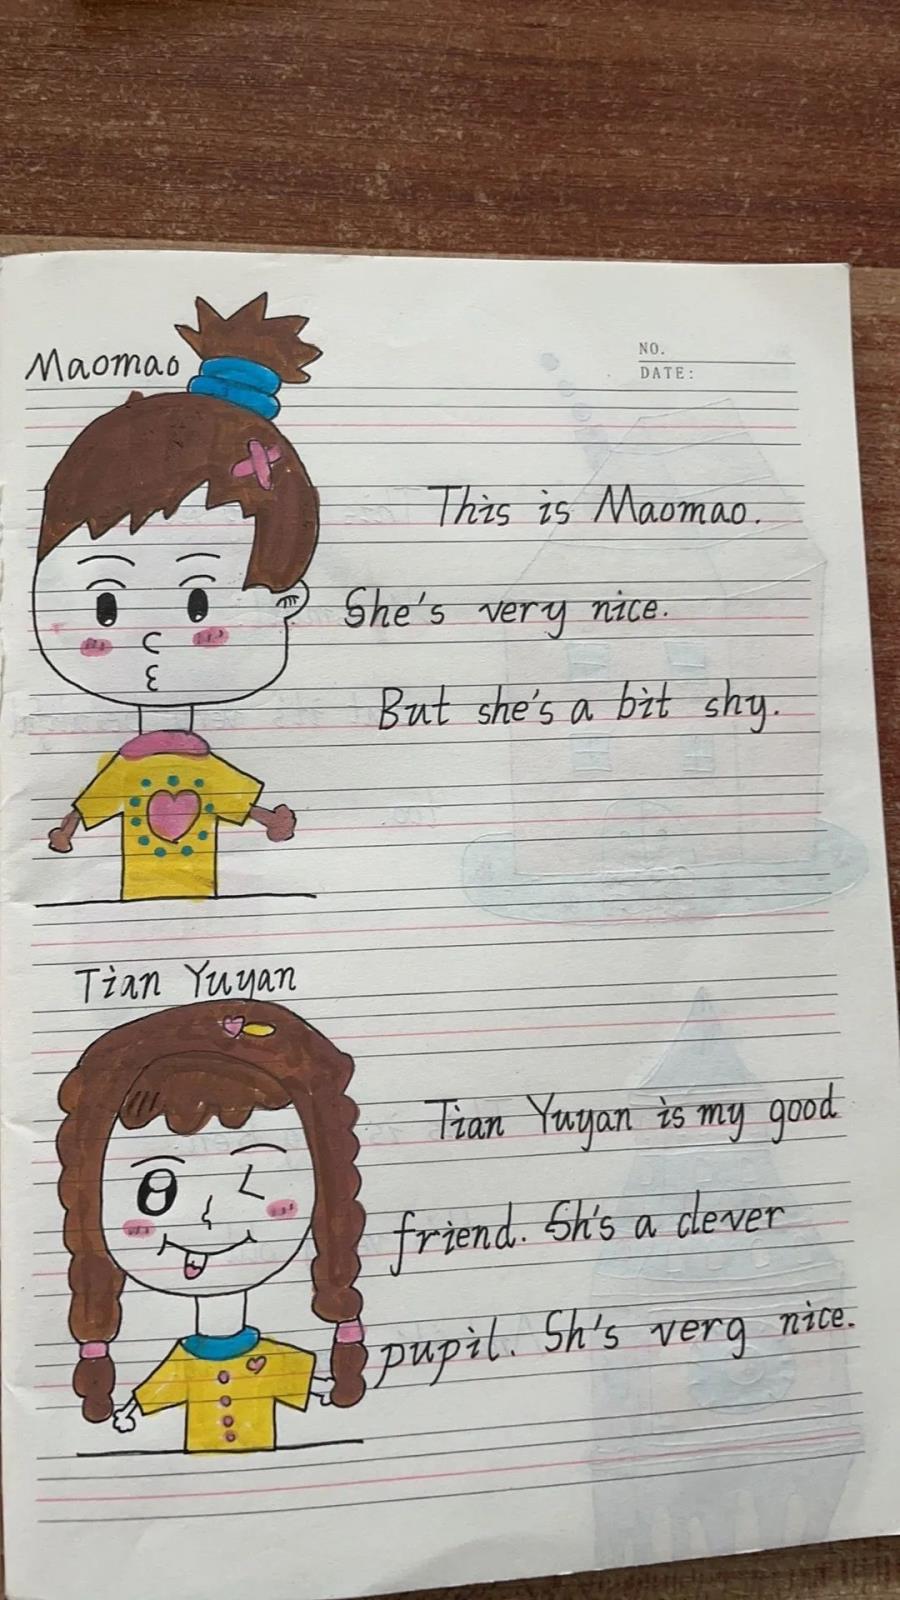 Maomao
NO.
DATE:
This is Maomao.
She's very nice.
But she's a bit shy.
Tian Yuyan
Tian Yuyan is my good
friend. Sh's a clever
pupil. Sh's verg nice.